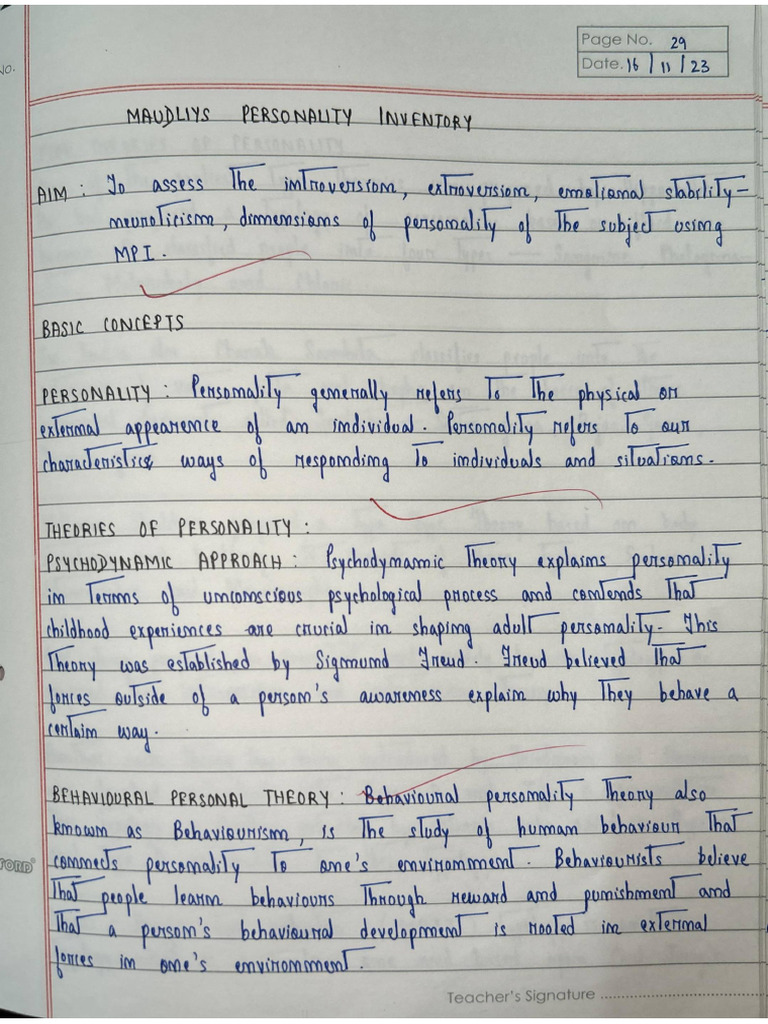 Page No. 29
Date. 16 / 11 / 23
MAUDLIYS PERSONALITY INVENTORY
AIM : To assess the introversion, extroversion, emotional stability-
neuroticism, dimensions of personality of the subject using
MPI.
BASIC CONCEPTS
PERSONALITY : Personality generally refers to the physical or
external appearence of an individual. Personality refers to our
characteristics ways of responding to individuals and situations.
THEORIES OF PERSONALITY :
PSYCHODYNAMIC APPROACH : Psychodynamic theory explains personality
in terms of unconscious psychological process and contends that
childhood experiences are crucial in shaping adult personality. This
theory was established by Sigmund Freud. Freud believed that
forces outside of a person's awareness explain why they behave a
certain way.
BEHAVIOURAL PERSONAL THEORY : Behavioural personality theory also
known as Behaviourism, is the study of human behaviour that
connects personality to one's environment. Behaviourists believe
that people learn behaviours through reward and punishment and
that a person's behavioural development is rooted in external
forces in one's environment.
Teacher's Signature